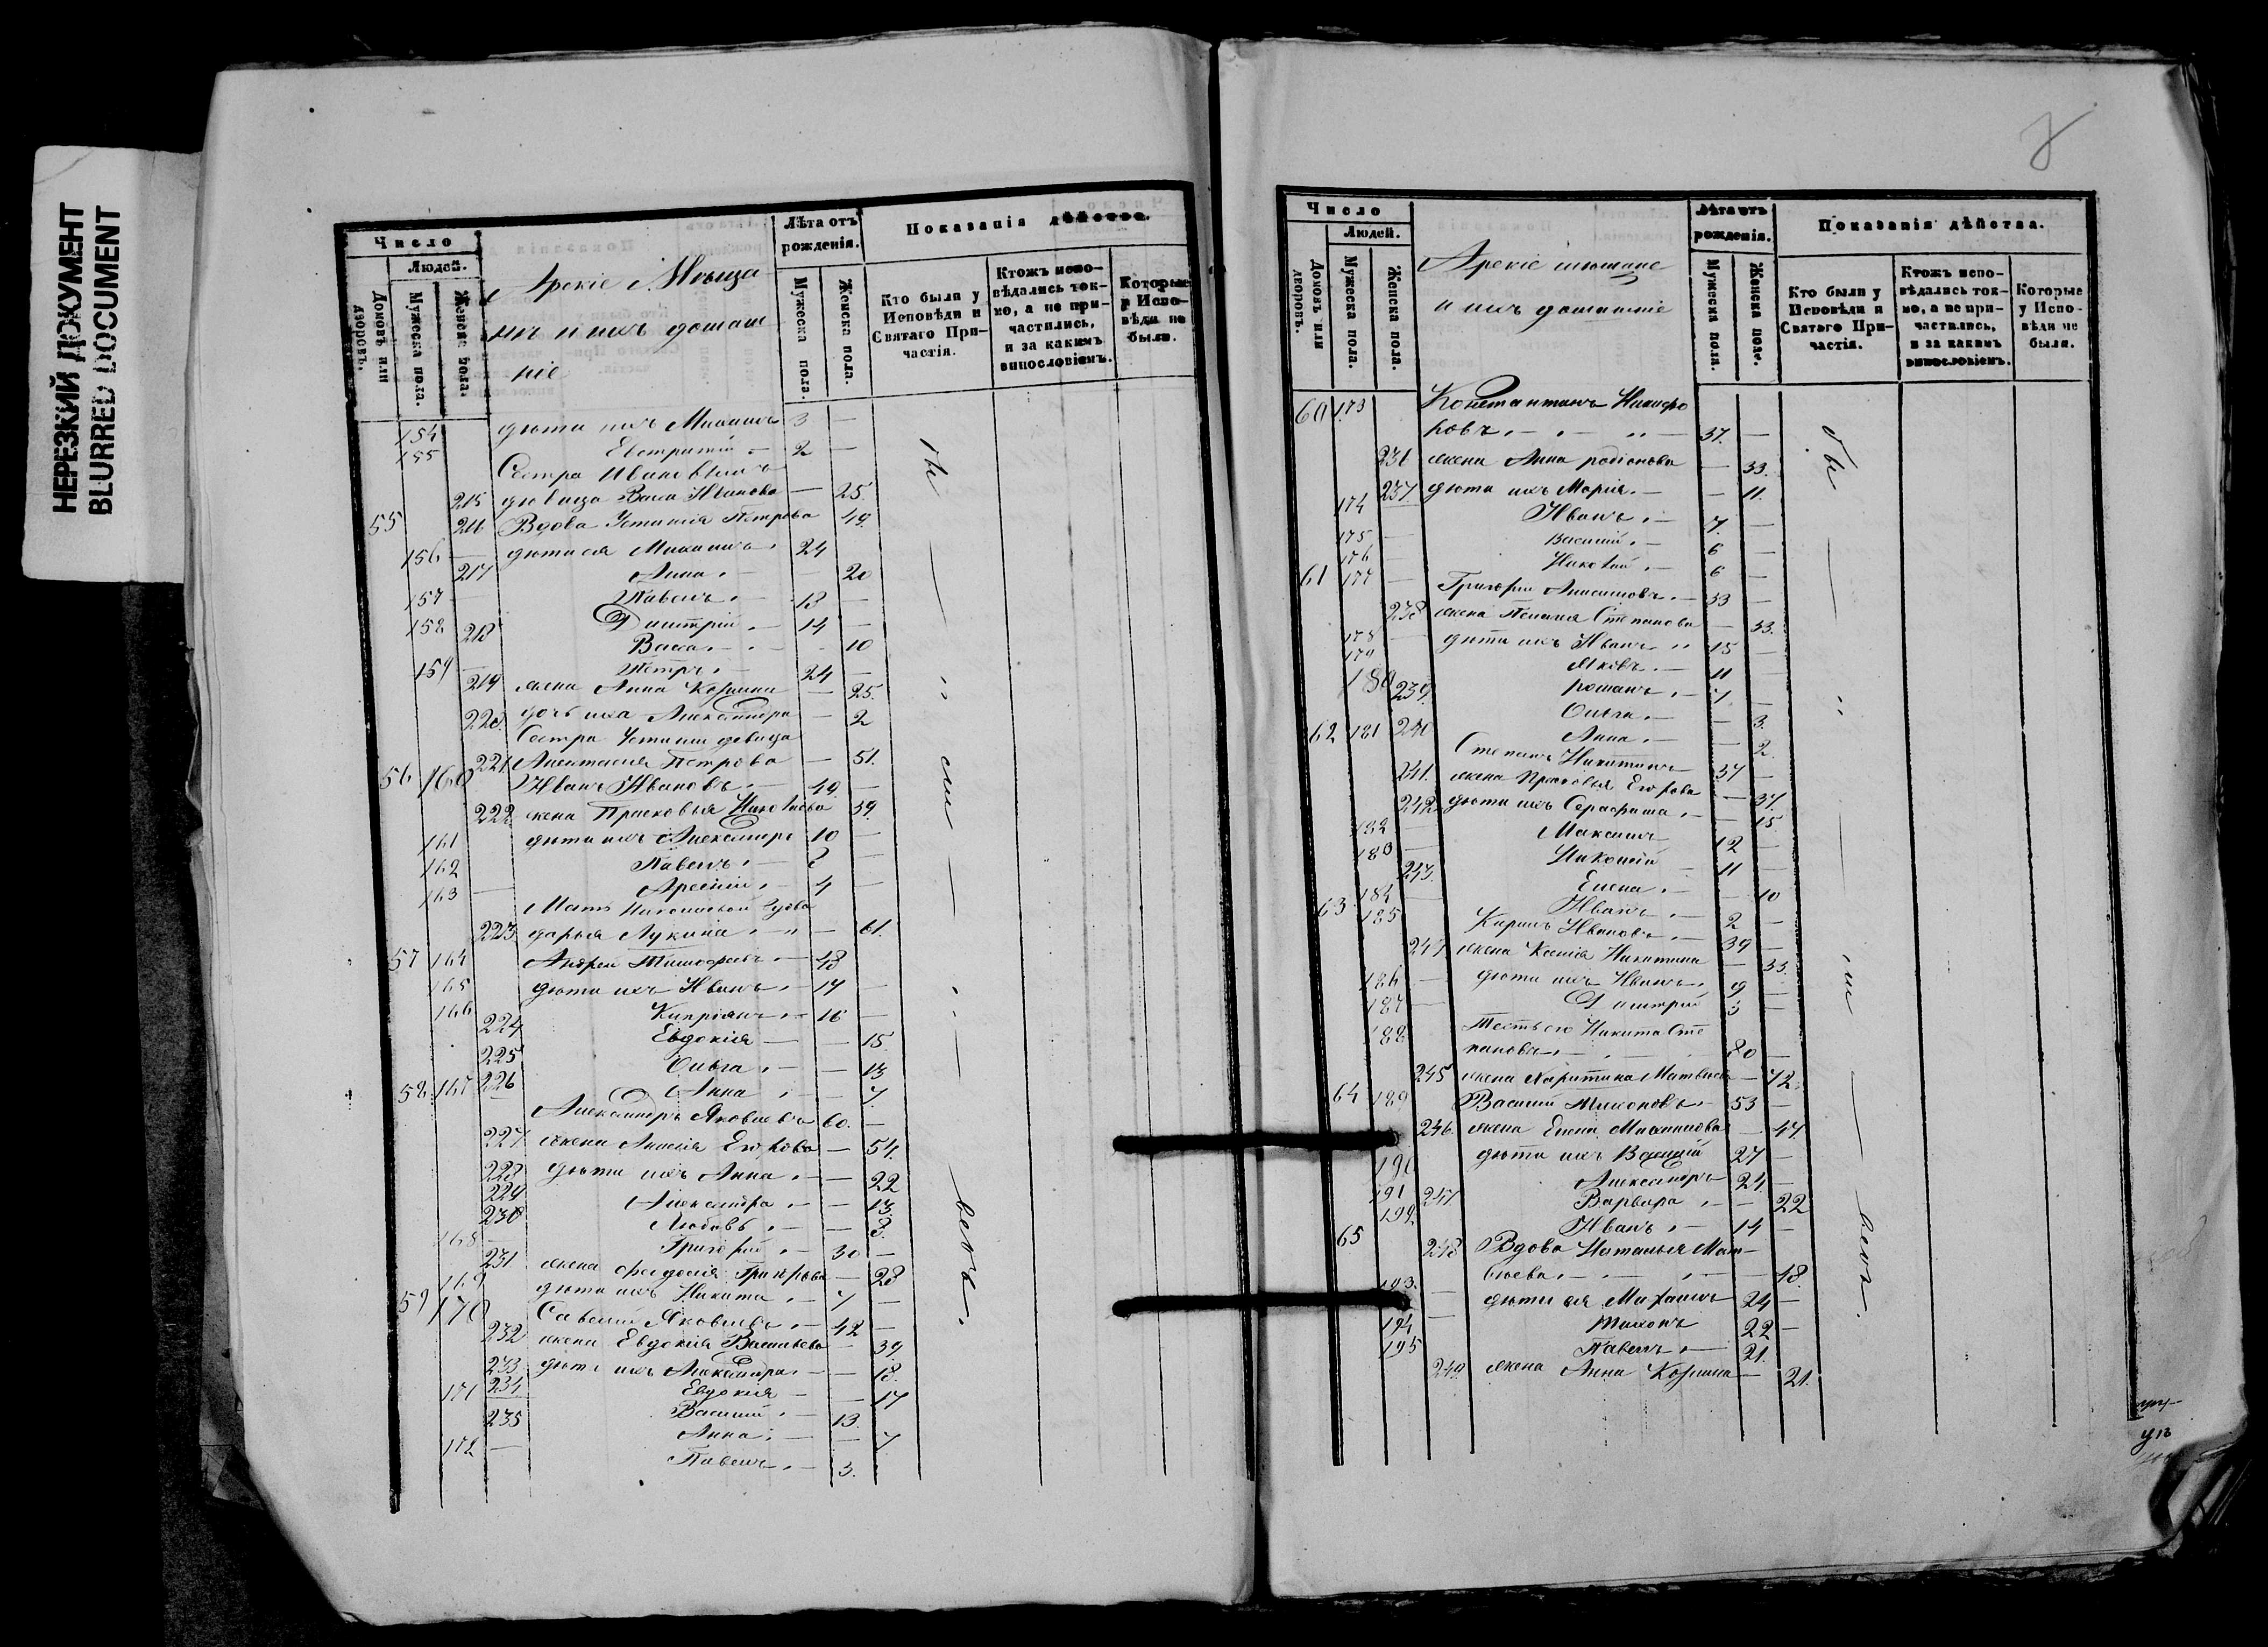 НЕРЕЗКИЙ ДОКУМЕНТ
BLURRED DOCUMENT
Число
Людей.
Домовъ или дворовъ.
Мужеска пола.
Женска пола.
Арскіе Мѣща
не и ихъ домаш
ніе
Лѣта отъ рожденія.
Мужеска пола.
Женска пола.
Показанія дѣйства.
Кто были у Исповѣди и Святаго При-частія.
Ктожъ испо-вѣдались ток-мо, а не при-частились, и за какимъ винословіемъ.
Которые у Испо-вѣди не были.
154 дѣти ихъ Михаилъ 3 —
155 Евстратій — 2 —
Сестра Ивановыхъ
215 дѣвица Васса Иванова — 25.
55 216 Вдова Устинія Петрова 49.
156 — дѣти ея Михаилъ 24
217 Анна — — 20
157 Павелъ — 18 —
158 Димитрій — 14 —
218 Васса — 10
159 — Петръ — 24 —
219 жена Анна Козмина — 25.
220. дочь ихъ Александра — 2
Сестра Устиньи дѣвица
221. Анастасія Петрова — 51.
56 160 Иванъ Ивановъ — 49. —
222 жена Прасковья Николаева 39.
161 дѣти ихъ Александръ 10 —
162 Павелъ — 8 —
163 — Арсеній — 4 —
Мать вдова
223 дарья Лукина — 61.
57 164 Андрей Тимофеевъ — 48
165 дѣти ихъ Иванъ — 17 —
166 Кипріянъ — 16 —
224 Евдокія — — 15
225 Ольга — — 13
226 Анна — — 7.
58 167 Александръ Яковлевъ 60. —
227 жена Анисія Егорова — 54.
228 дѣти ихъ Анна — — 22
229 Александра — — 13.
230 Любовь — — 8.
168 — Григорій — 30 —
231 жена Феодосія Григорьева — 28
169 дѣти ихъ Никита — 7 —
59 170 Савелій Яковлевъ — 42 —
232 жена Евдокія Васильева — 39
233 дѣти ихъ Александра — — 18.
234 Евдокія — — 17
171 Василій — 13.
235 Анна — — 7
172 — Павелъ — 3.
бы — " — ли — " — всѣ.
Число
Людей.
Домовъ или дворовъ.
Мужеска пола.
Женска пола.
Арскіе мѣщане
и ихъ домашніе
Лѣта отъ рожденія.
Мужеска пола.
Женска пола.
Показанія дѣйства.
Кто были у Исповѣди и Святаго При-частія.
Ктожъ испо-вѣдались ток-мо, а не при-частились, и за какимъ винословіемъ.
Которые у Испо-вѣди не были.
60 173 Константинъ Никифо
ровъ — 37. —
236 жена Анна родіонова — 33.
237 дѣти ихъ Марія — — 11.
174 Иванъ — 7. —
175 — Василій — 6 —
176 Николай — 6 —
61 177 — Григорій Анисимовъ — 33 —
238 жена Пелагея Степанова — 33.
178 — дѣти ихъ Иванъ 15 —
179 Яковъ — 11 —
180 романъ — 7. —
239. Ольга — — 3.
240 Анна — — 2
62 181 Степанъ Никитинъ 37 —
241. жена Прасковья Егорова — 37.
242 дѣти ихъ Серафима — — 15.
182 — Максимъ 12 —
183 — Николай — 11 —
243. Елена — — 10
184 — Иванъ — 2 —
63 185 Карпъ Ивановъ — 39 —
244 жена Ксенія Никитина — 33.
186 — дѣти ихъ Иванъ 9 —
187 — Димитрій 3 —
188 Тесть его Никита Сте
пановъ — 80 —
245 жена Харитина Матвѣева — 72.
64 189 Василій Тихоновъ — 53 —
246. жена Елена Михайлова — 47.
190 дѣти ихъ Василій 27 —
191 Александръ 24. —
247. Варвара — — 22
192. Иванъ — 14 —
65 248 Вдова Наталья Мат—
вѣева — 48.
193. — дѣти ея Михаилъ 24 —
194 — Тихонъ 22 —
195 Павелъ — 21.
249. жена Анна Козмина — 21.
бы — " — ли — всѣ.